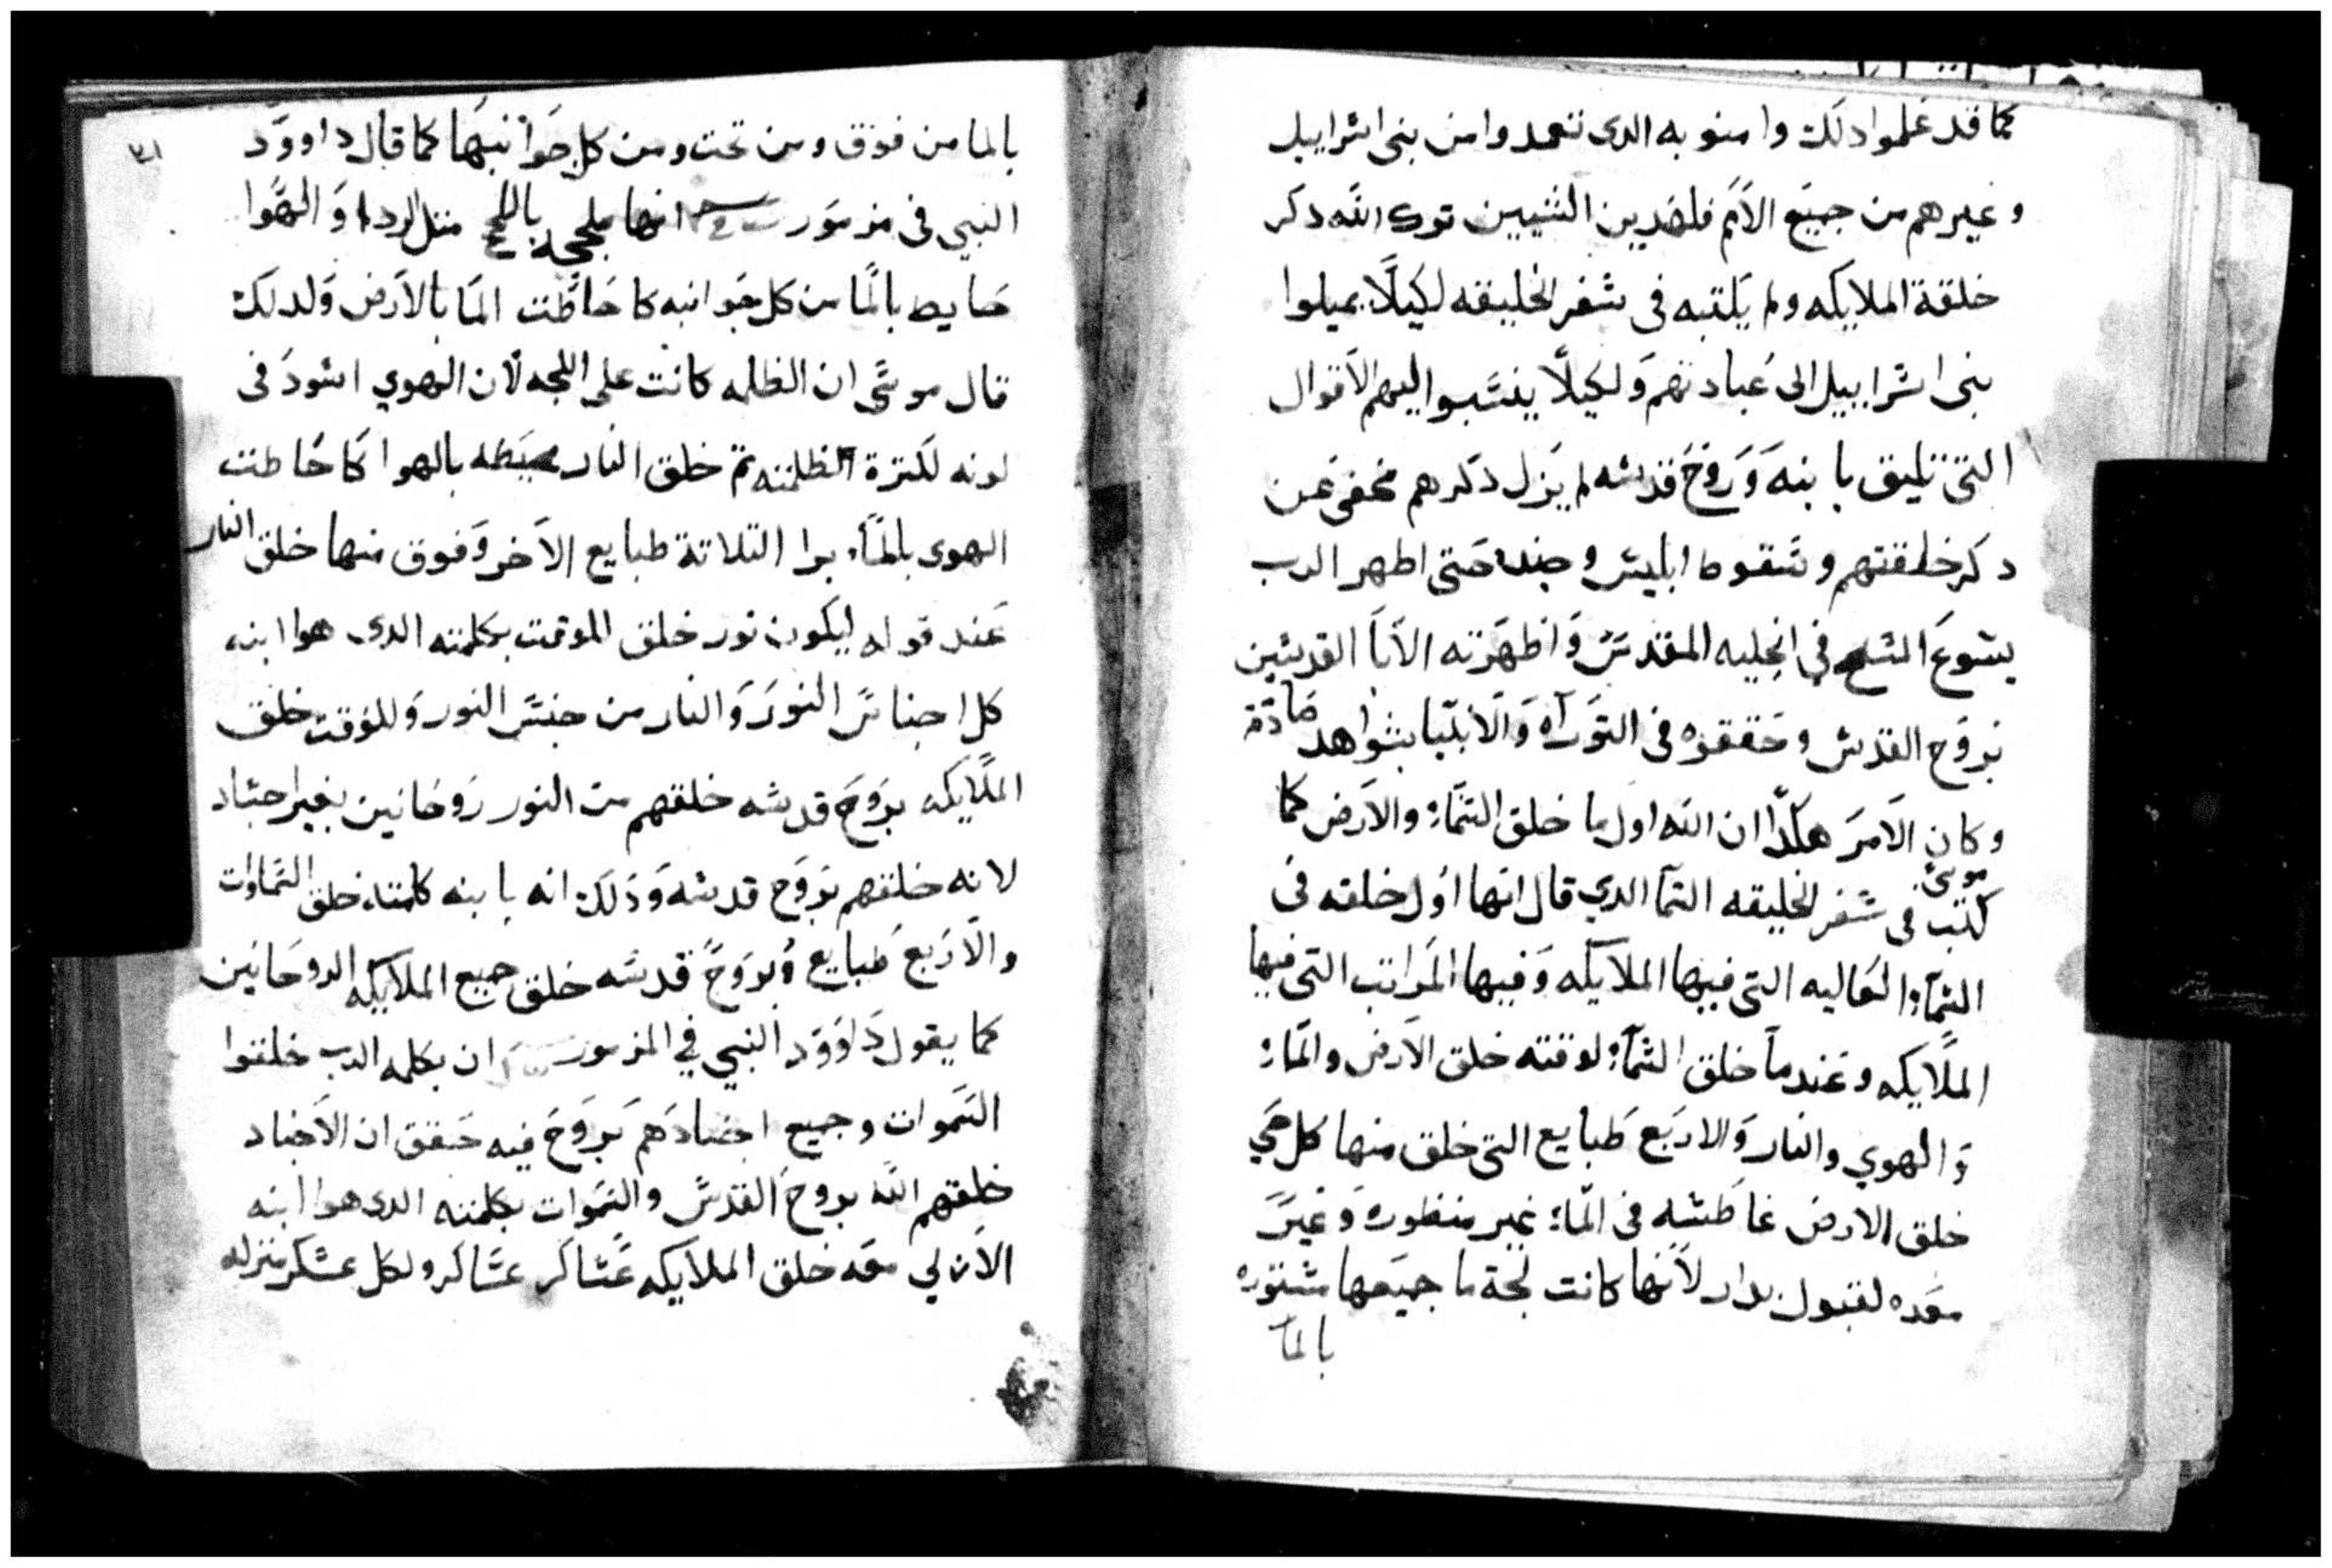 كما قد علموا دلك وامنو به الدى تعمدوا من بنى اسراييل
وغيرهم من جميع الامم فلهدين السببين ترك الله دكر
خلقة الملايكه ولم يكتبه فى سفر الخليقه لكيلا يميلوا
بنى اسراييل الى عبادتهم ولكيلا ينسبوا اليهم الاقوال
التى تليق بابنه وروح قدسه لم يزل دكرهم مخفى عن
دكر خلقتهم وسقوط ابليس وجنده حتى اظهر الرب
يسوع المسيح فى انجليه المقدس واظهرته الابا القديسين
بروح القدس وحققوه فى التوراه والانبيا بشواهد صادقه
وكان الامر هكدا ان الله اول ما خلق السماء والارض كما
كتب موسى فى سفر الخليقه السما الدي قال انها اول خلقه فى
السماء العاليه التى فيها الملايكه وفيها المراتب التى فيها
الملايكه وعندما خلق السماء لوقته خلق الارض والماء
والهوي والنار والاربع طبايع التى خلق منها كل حي
خلق الارض غاطسه فى الماء غير منظوره وغير
معده لقبول بدار لانها كانت لجة ما جميعها مستوره
بالما
٣١
بالما من فوق ومن تحت ومن كل جوانبها كما قال داوود
النبي فى مزمور انها ملججه باللجج متل الردا والهوا
حايط بالما من كل جوانبه كاحاطت الما بالارض ولدلك
قال موسى ان الظلمه كانت على اللجه لان الهوي اسود فى
لونه لكترة الظلمته تم خلق النار محيطه بالهوا كاحاطت
الهوى بالماء برا التلاتة طبايع الاخر وفوق منها خلق النار
عند قوله ليكون نور خلق الموقت بكلمته الدى هوا ابنه
كل اجناس النور والنار من جنس النور وللوقت خلق
الملايكه بروح قدسه خلقهم من النور روحانين بغير اجساد
لانه خلقهم بروح قدسه ودلك انه بابنه كلمته خلق السماوات
والاربع طبايع وبروح قدسه خلق جميع الملايكه الروحانين
كما يقول داوود النبي في المزمور ان بكلمه الرب خلقوا
السموات وجميع اجنادهم بروح فيه حقق ان الاجناد
خلقهم الله بروح القدس والسموات بكلمته الدى هوا ابنه
الازلي معه خلق الملايكه عساكر عساكر ولكل عسكر منزله